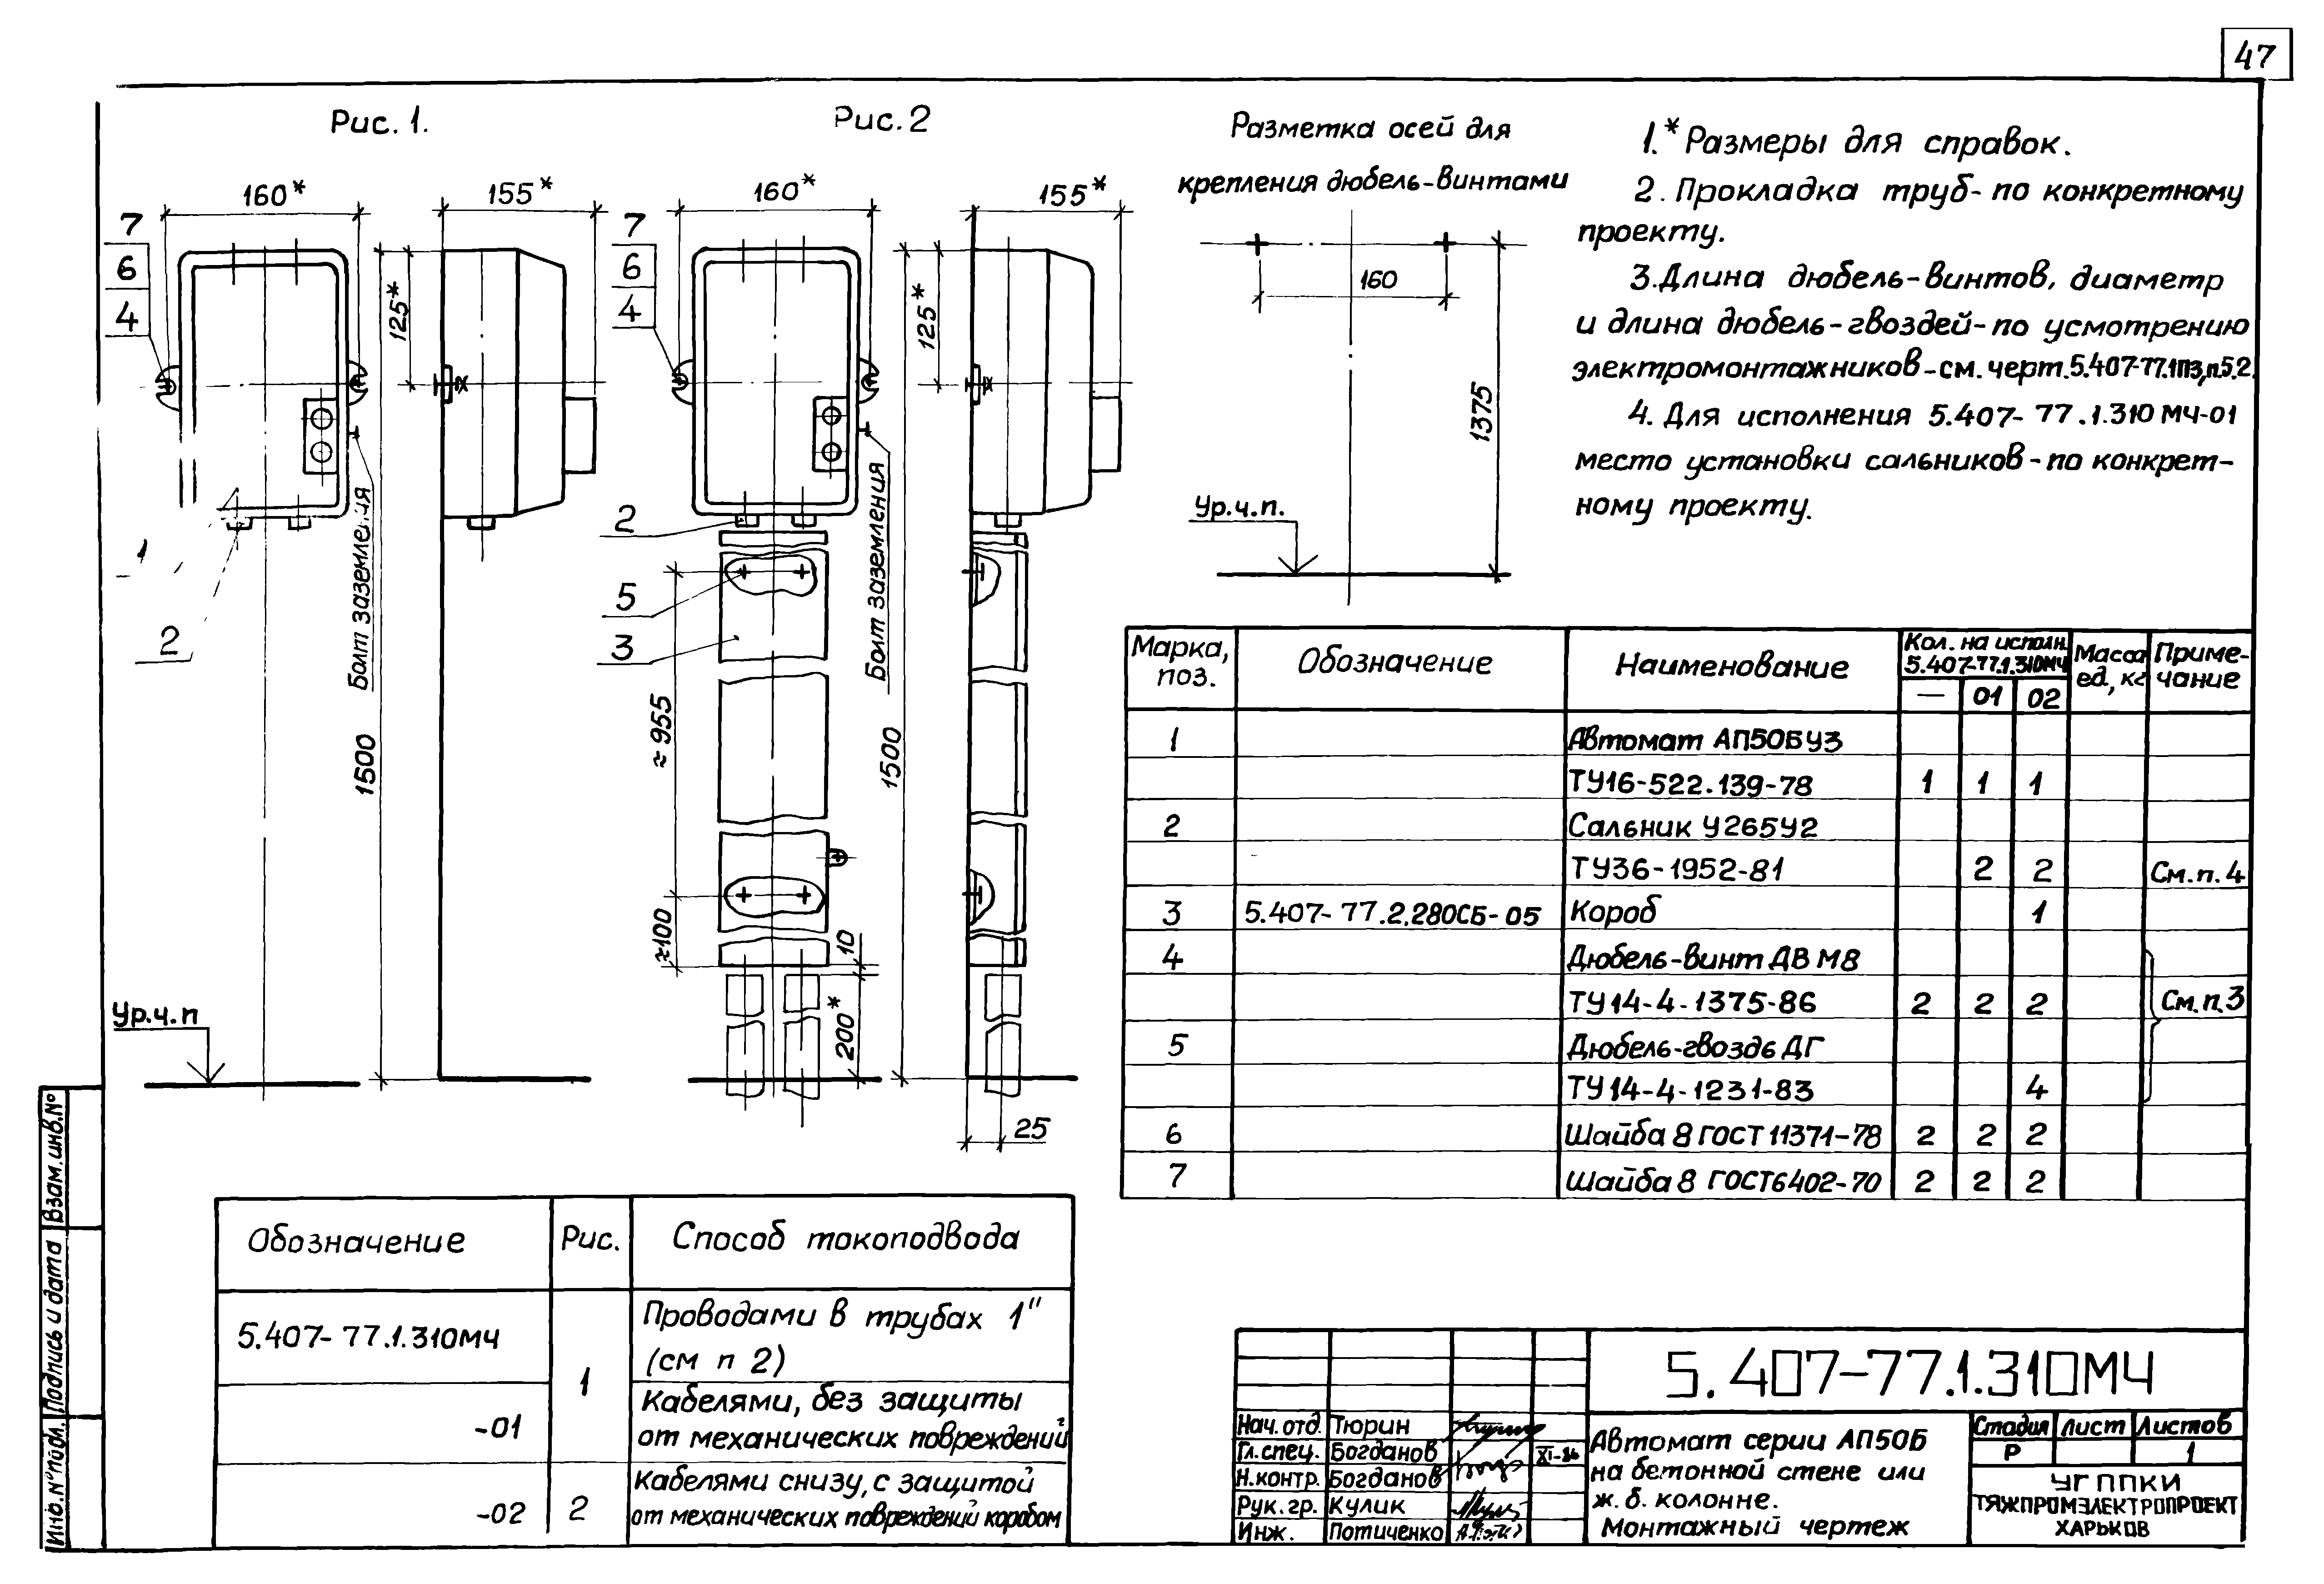 47
Рис. 1.
Рис. 2
160*
155*
7
6
4
125*
1
2
Болт заземления
1500
Ур.ч.п
160*
155*
7
6
4
125*
2
5
3
Болт заземления
≈955
≈100
10
200*
1500
25
Разметка осей для
крепления дюбель-винтами
160
1375
Ур.ч.п.
1.* Размеры для справок.
2. Прокладка труб - по конкретному
проекту.
3. Длина дюбель-винтов, диаметр
и длина дюбель-гвоздей - по усмотрению
электромонтажников - см. черт. 5.407-77.1ПЗ, п.5.2.
4. Для исполнения 5.407-77.1.310МЧ-01
место установки сальников - по конкрет-
ному проекту.
Марка, поз. Обозначение Наименование Кол. на исполн. 5.407-77.1.310МЧ Масса ед., кг Приме-чание
— 01 02
1 Автомат АП50БУ3
ТУ16-522.139-78 1 1 1
2 Сальник У265У2
ТУ36-1952-81 2 2 См. п. 4
3 5.407-77.2.280СБ-05 Короб 1
4 Дюбель-винт ДВ М8
ТУ14-4-1375-86 2 2 2 См. п. 3
5 Дюбель-гвоздь ДГ
ТУ14-4-1231-83 4
6 Шайба 8 ГОСТ 11371-78 2 2 2
7 Шайба 8 ГОСТ6402-70 2 2 2
Обозначение Рис. Способ токоподвода
5.407-77.1.310МЧ 1 Проводами в трубах 1"
(см п 2)
-01 Кабелями, без защиты
от механических повреждений
-02 2 Кабелями снизу, с защитой
от механических повреждений коробом
5.407-77.1.310МЧ
Нач. отд. Тюрин
Гл. спец. Богданов XI-86
Н.контр. Богданов
Рук. гр. Кулик
Инж. Потиченко
Автомат серии АП50Б
на бетонной стене или
ж. б. колонне.
Монтажный чертеж
Стадия Лист Листов
Р 1
УГППКИ
ТЯЖПРОМЭЛЕКТРОПРОЕКТ
ХАРЬКОВ
Инв. № подл. Подпись и дата Взам. инв. №